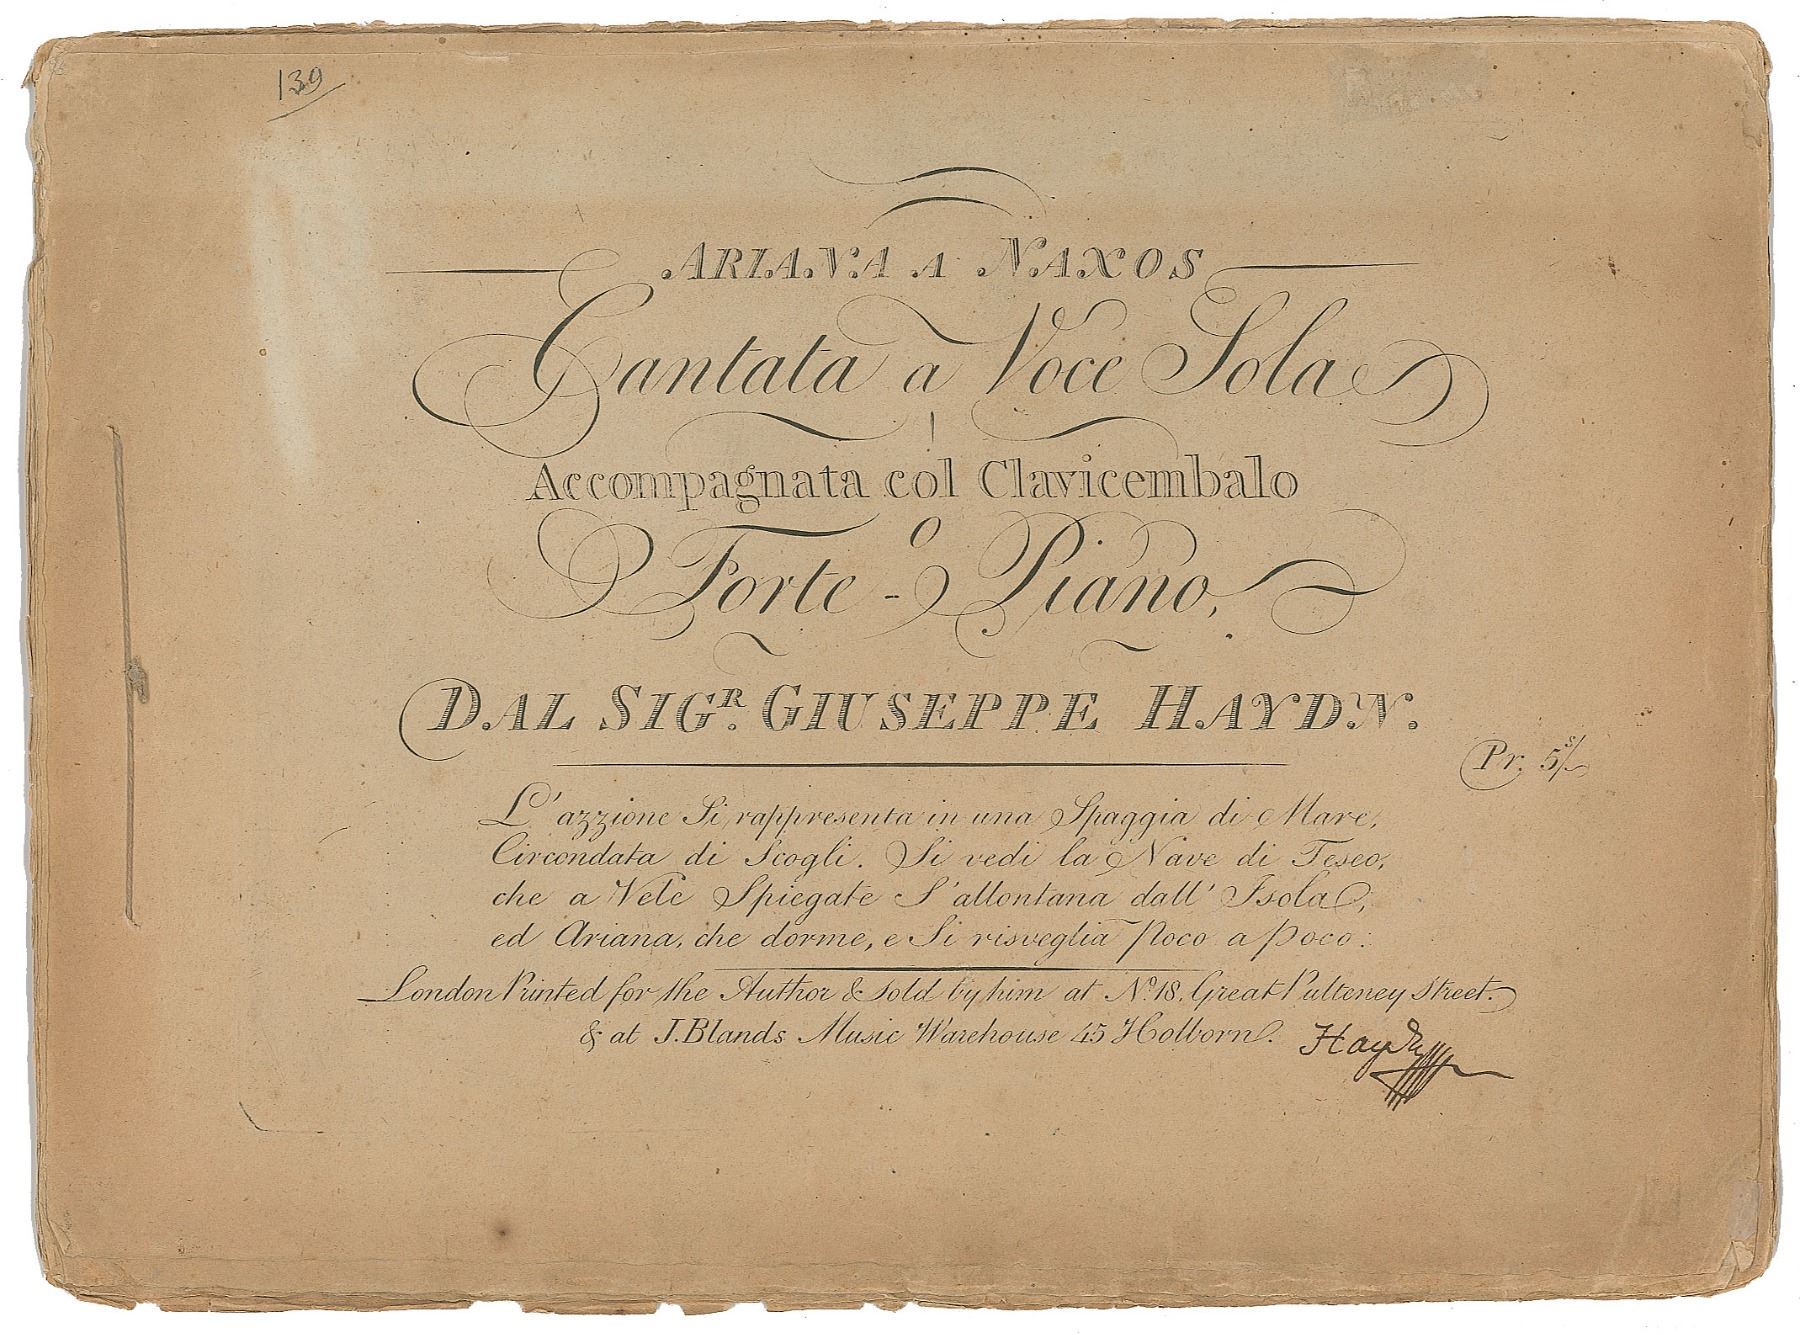 139
ARIANA A NAXOS
Cantata a Voce Sola
Accompagnata col Clavicembalo
o
Forte-Piano,
DAL SIGR. GIUSEPPE HAYDN.
Pr. 5s/
L'azzione Si rappresenta in una Spaggia di Mare,
Circondata di Scogli. Si vedi la Nave di Teseo,
che a Vele Spiegate S'allontana dall' Isola,
ed Ariana, che dorme, e Si risveglia poco a poco:
London Printed for the Author & Sold by him at No. 18, Great Pulteney Street.
& at J. Blands Music Warehouse 45 Holborn.
Haydn